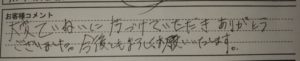 お客様コメント
大変ていねいに片づけていただきありがとう
ございました。今後ともよろしくお願いいたします。